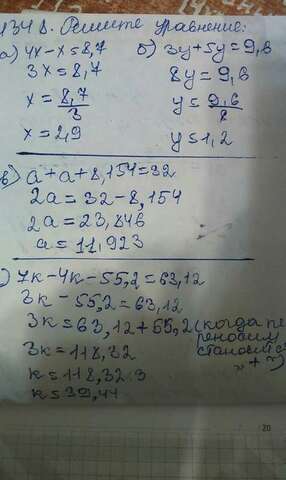 1348. Решите уравнение:
а) 4x-x=8,7
3x=8,7
x=8,7/3
x=2,9
б) 3y+5y=9,6
8y=9,6
y=9,6/8
y=1,2
в) a+a+8,154=32
2a=32-8,154
2a=23,846
a=11,923
) 7k-4k-55,2=63,12
3k-55,2=63,12
3k=63,12+55,2 (когда пе
реносим
становится
"+")
3k=118,32
k=118,32:3
k=39,44
20